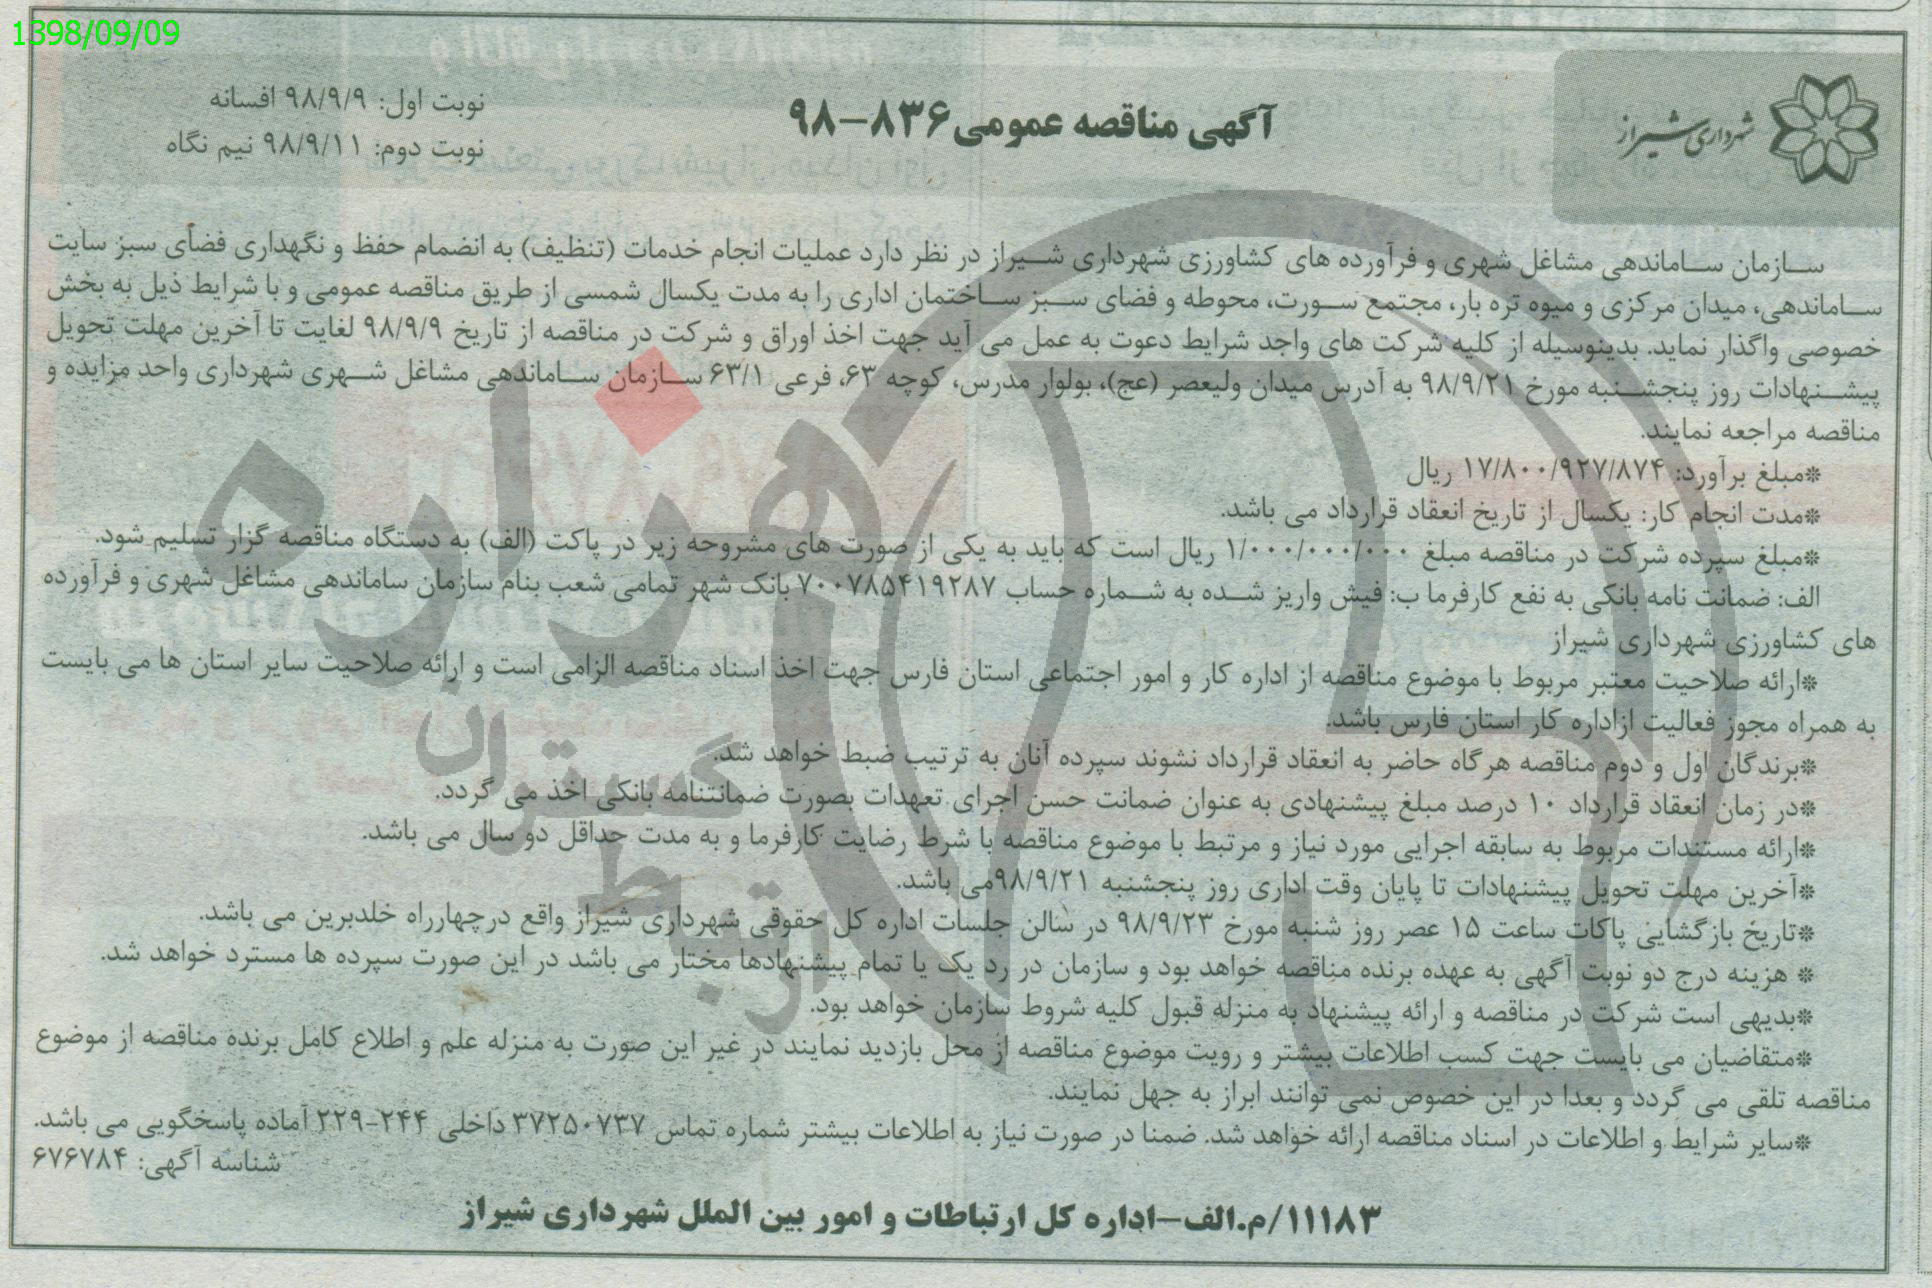 1398/09/09
شهرداری شیراز
آگهی مناقصه عمومی ۸۳۶-۹۸
نوبت اول: ۹۸/۹/۹ افسانه
نوبت دوم: ۹۸/۹/۱۱ نیم نگاه
سازمان ساماندهی مشاغل شهری و فرآورده های کشاورزی شهرداری شیراز در نظر دارد عملیات انجام خدمات (تنظیف) به انضمام حفظ و نگهداری فضای سبز سایت
ساماندهی، میدان مرکزی و میوه تره بار، مجتمع سورت، محوطه و فضای سبز ساختمان اداری را به مدت یکسال شمسی از طریق مناقصه عمومی و با شرایط ذیل به بخش
خصوصی واگذار نماید. بدینوسیله از کلیه شرکت های واجد شرایط دعوت به عمل می آید جهت اخذ اوراق و شرکت در مناقصه از تاریخ ۹۸/۹/۹ لغایت تا آخرین مهلت تحویل
پیشنهادات روز پنجشنبه مورخ ۹۸/۹/۲۱ به آدرس میدان ولیعصر (عج)، بولوار مدرس، کوچه ۶۳، فرعی ۶۳/۱ سازمان ساماندهی مشاغل شهری شهرداری واحد مزایده و
مناقصه مراجعه نمایند.
*مبلغ برآورد: ۱۷/۸۰۰/۹۲۷/۸۷۴ ریال
*مدت انجام کار: یکسال از تاریخ انعقاد قرارداد می باشد.
*مبلغ سپرده شرکت در مناقصه مبلغ ۱/۰۰۰/۰۰۰/۰۰۰ ریال است که باید به یکی از صورت های مشروحه زیر در پاکت (الف) به دستگاه مناقصه گزار تسلیم شود.
الف: ضمانت نامه بانکی به نفع کارفرما ب: فیش واریز شده به شماره حساب ۷۰۰۷۸۵۴۱۹۲۸۷ بانک شهر تمامی شعب بنام سازمان ساماندهی مشاغل شهری و فرآورده
های کشاورزی شهرداری شیراز
*ارائه صلاحیت معتبر مربوط با موضوع مناقصه از اداره کار و امور اجتماعی استان فارس جهت اخذ اسناد مناقصه الزامی است و ارائه صلاحیت سایر استان ها می بایست
به همراه مجوز فعالیت ازاداره کار استان فارس باشد.
*برندگان اول و دوم مناقصه هرگاه حاضر به انعقاد قرارداد نشوند سپرده آنان به ترتیب ضبط خواهد شد.
*در زمان انعقاد قرارداد ۱۰ درصد مبلغ پیشنهادی به عنوان ضمانت حسن اجرای تعهدات بصورت ضمانتنامه بانکی اخذ می گردد.
*ارائه مستندات مربوط به سابقه اجرایی مورد نیاز و مرتبط با موضوع مناقصه با شرط رضایت کارفرما و به مدت حداقل دو سال می باشد.
*آخرین مهلت تحویل پیشنهادات تا پایان وقت اداری روز پنجشنبه ۹۸/۹/۲۱می باشد.
*تاریخ بازگشایی پاکات ساعت ۱۵ عصر روز شنبه مورخ ۹۸/۹/۲۳ در سالن جلسات اداره کل حقوقی شهرداری شیراز واقع درچهارراه خلدبرین می باشد.
* هزینه درج دو نوبت آگهی به عهده برنده مناقصه خواهد بود و سازمان در رد یک یا تمام پیشنهادها مختار می باشد در این صورت سپرده ها مسترد خواهد شد.
*بدیهی است شرکت در مناقصه و ارائه پیشنهاد به منزله قبول کلیه شروط سازمان خواهد بود.
*متقاضیان می بایست جهت کسب اطلاعات بیشتر و رویت موضوع مناقصه از محل بازدید نمایند در غیر این صورت به منزله علم و اطلاع کامل برنده مناقصه از موضوع
مناقصه تلقی می گردد و بعدا در این خصوص نمی توانند ابراز به جهل نمایند.
*سایر شرایط و اطلاعات در اسناد مناقصه ارائه خواهد شد. ضمنا در صورت نیاز به اطلاعات بیشتر شماره تماس ۳۷۲۵۰۷۳۷ داخلی ۲۴۴-۲۲۹ آماده پاسخگویی می باشد.
شناسه آگهی: ۶۷۶۷۸۴
۱۱۱۸۳/م.الف-اداره کل ارتباطات و امور بین الملل شهرداری شیراز
هزاره
گستران
ارتباط